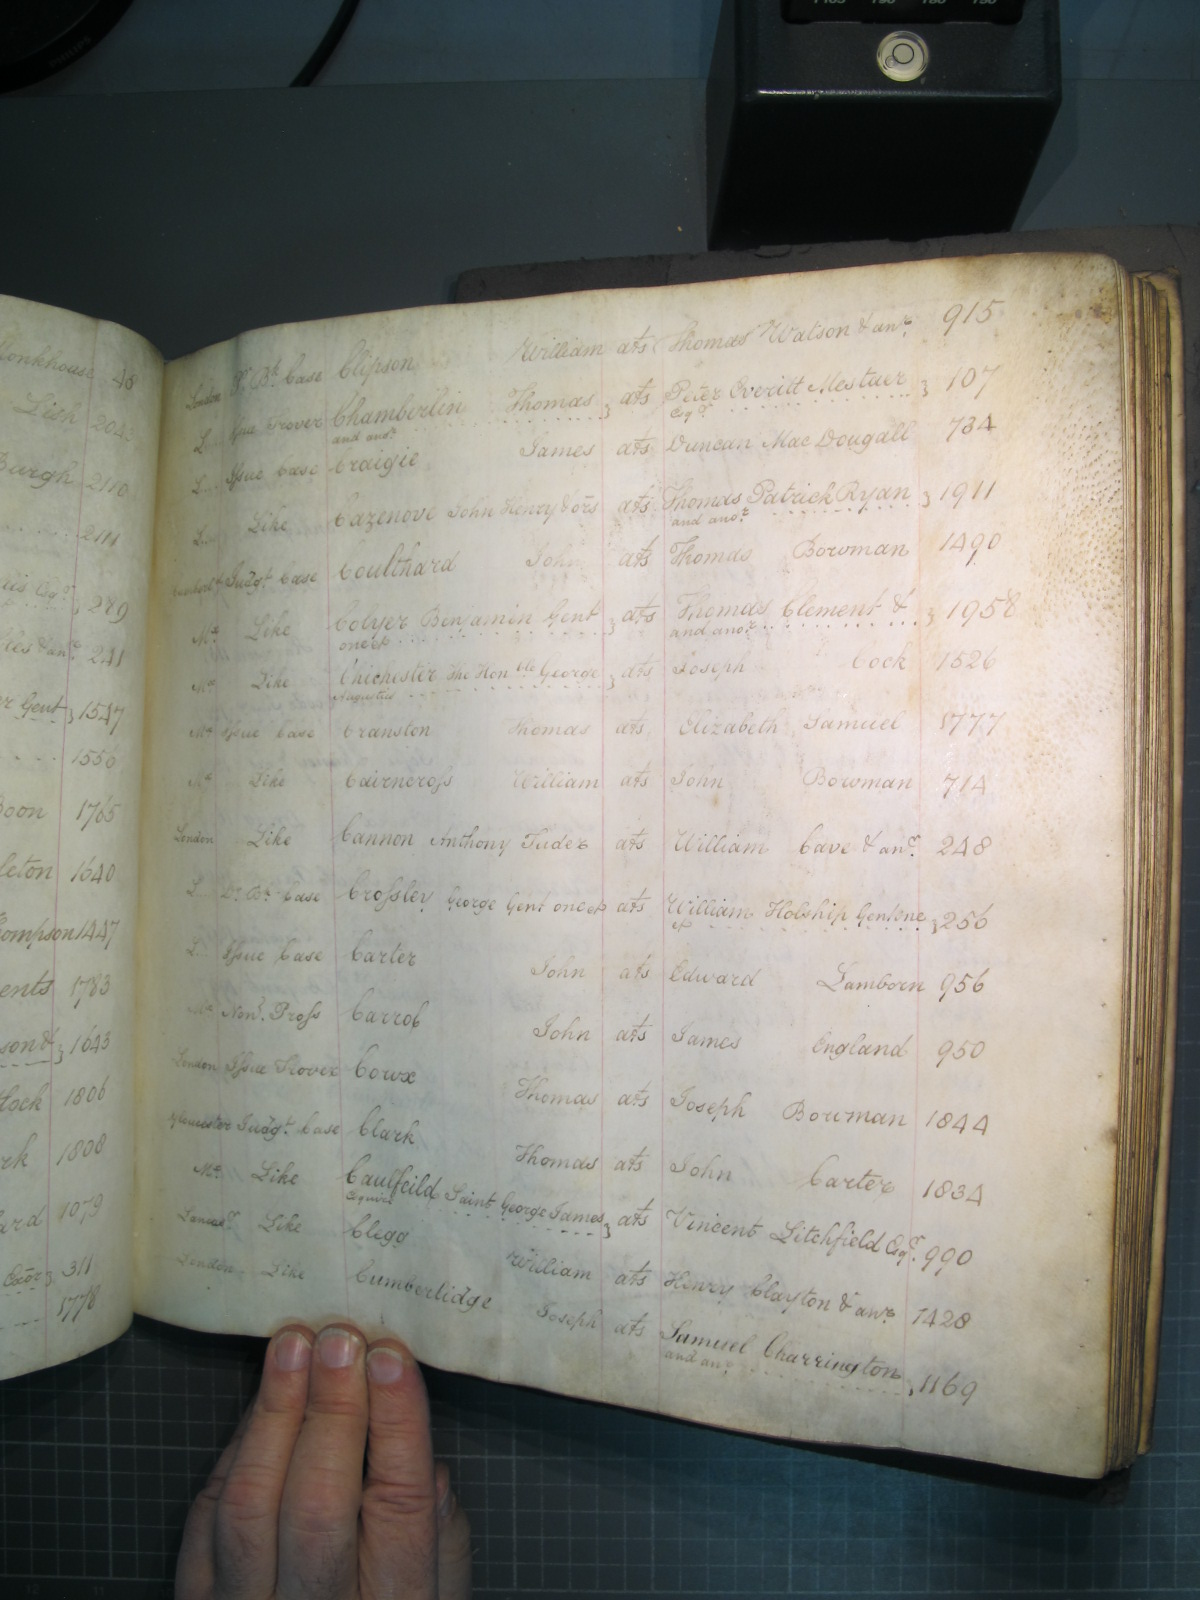 Monkhouse 48
Lich 2043
Burgh 2110
2111
Esqr. 279
& anr. 241
Gent 1547
1556
1765
1640
1447
1783
1643
1806
1808
1079
Exor 311
1778
London Dr. Bt. Case Clipson William ats Thomas Watson & anr. 915
L... Trover Chamberlin Thomas ats Peter Everitt Mestuer 107
and anor. Esqr.
L... Issue Case Craigie James ats Duncan Mac Dougall 734
L... Like Cazenove John Henry & ors ats Thomas Patrick Ryan 1911
and anor.
Judgt. Case Coulthard John ats Thomas Bowman 1490
Mx Like Colyer Benjamin Gent ats Thomas Clement & 1958
one &c and anor.
Mx Like Chichester The Honble George ats Joseph Cock 1526
Augustus
Mx Issue Case Cranston Thomas ats Elizabeth Samuel 1777
Mx Like Cairncross William ats John Bowman 714
London Like Cannon Anthony Tudor ats William Cave & anr. 248
L... Dr. Bt. Case Crossley George Gent one &c ats William Holship Gent one 256
&c
L... Issue Case Carter John ats Edward Lamborn 956
Mx Non. Pross Carrob John ats James England 950
London Issue Trover Cowx Thomas ats Joseph Bowman 1844
Gloucester Judgt. Case Clark Thomas ats John Carter 1834
Mx Like Caulfeild Saint George James ats Vincent Litchfield Esqr. 990
Esquire
Like Clegg William ats Henry Clayton & anr. 1428
London Like Cumberlidge Joseph ats Samuel Charrington 1169
and anr.